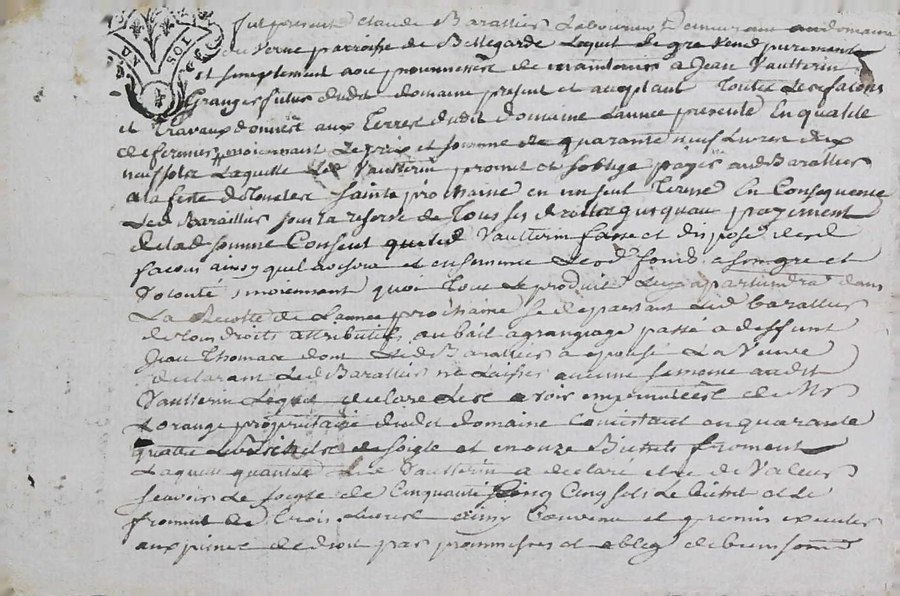 Fut present Claude Barallier Laboureur Demeurant au domaine
du Verne parroisse de Bellegarde Lequel de gre Vend purement
et simplement avec prommesse de maintenir a Jean Vautterin
Granger futur dudit domaine present et acceptant Toutes Les facons
et Travaux donnes aux Terres dudit domaine Lannee presente En qualite
de fermier, moiennant Le prix et somme de quarante neuf Livres dix
neuf sols Laquelle Led Vautterin promet et soblige payer aud Barallier
a la feste de Toussaints Sainte prochaine en un seul Terme En Consequence
Led Barallier sous la reserve de Tous ses droits jusquau payement
de lad somme Consent que led Vautterin fasse et dispose desd
facons ainsy quil avisera et ensemence Lesd fonds a son gre et
Volonté, moiennant quoy Tout Le produit Luy apartiendra dans
La Recolte de Lannee prochaine se departant Led barallier
de tous droits attributifs au bail a grangeage passé a deffunt
Jean Thomace dont Led Barallier a epousé La Veuve
declarant Led Barallier ne Laisser aucune semence audit
Vautterin Lequel declare Les avoir de Mr
Lorange propriétaire dudit domaine Consistant en quarante
quatre Bichets de soigle et en onze Bichets froment
Laquelle quantité Led Vautterin a declaré etre de Valeur
scavoir Le soigle de Cinquante Cinq sols Le bichet et Le
froment de trois Livres Ainsy Convenu et promis executer
aux peines de droit par prommesses et oblig de biens soms